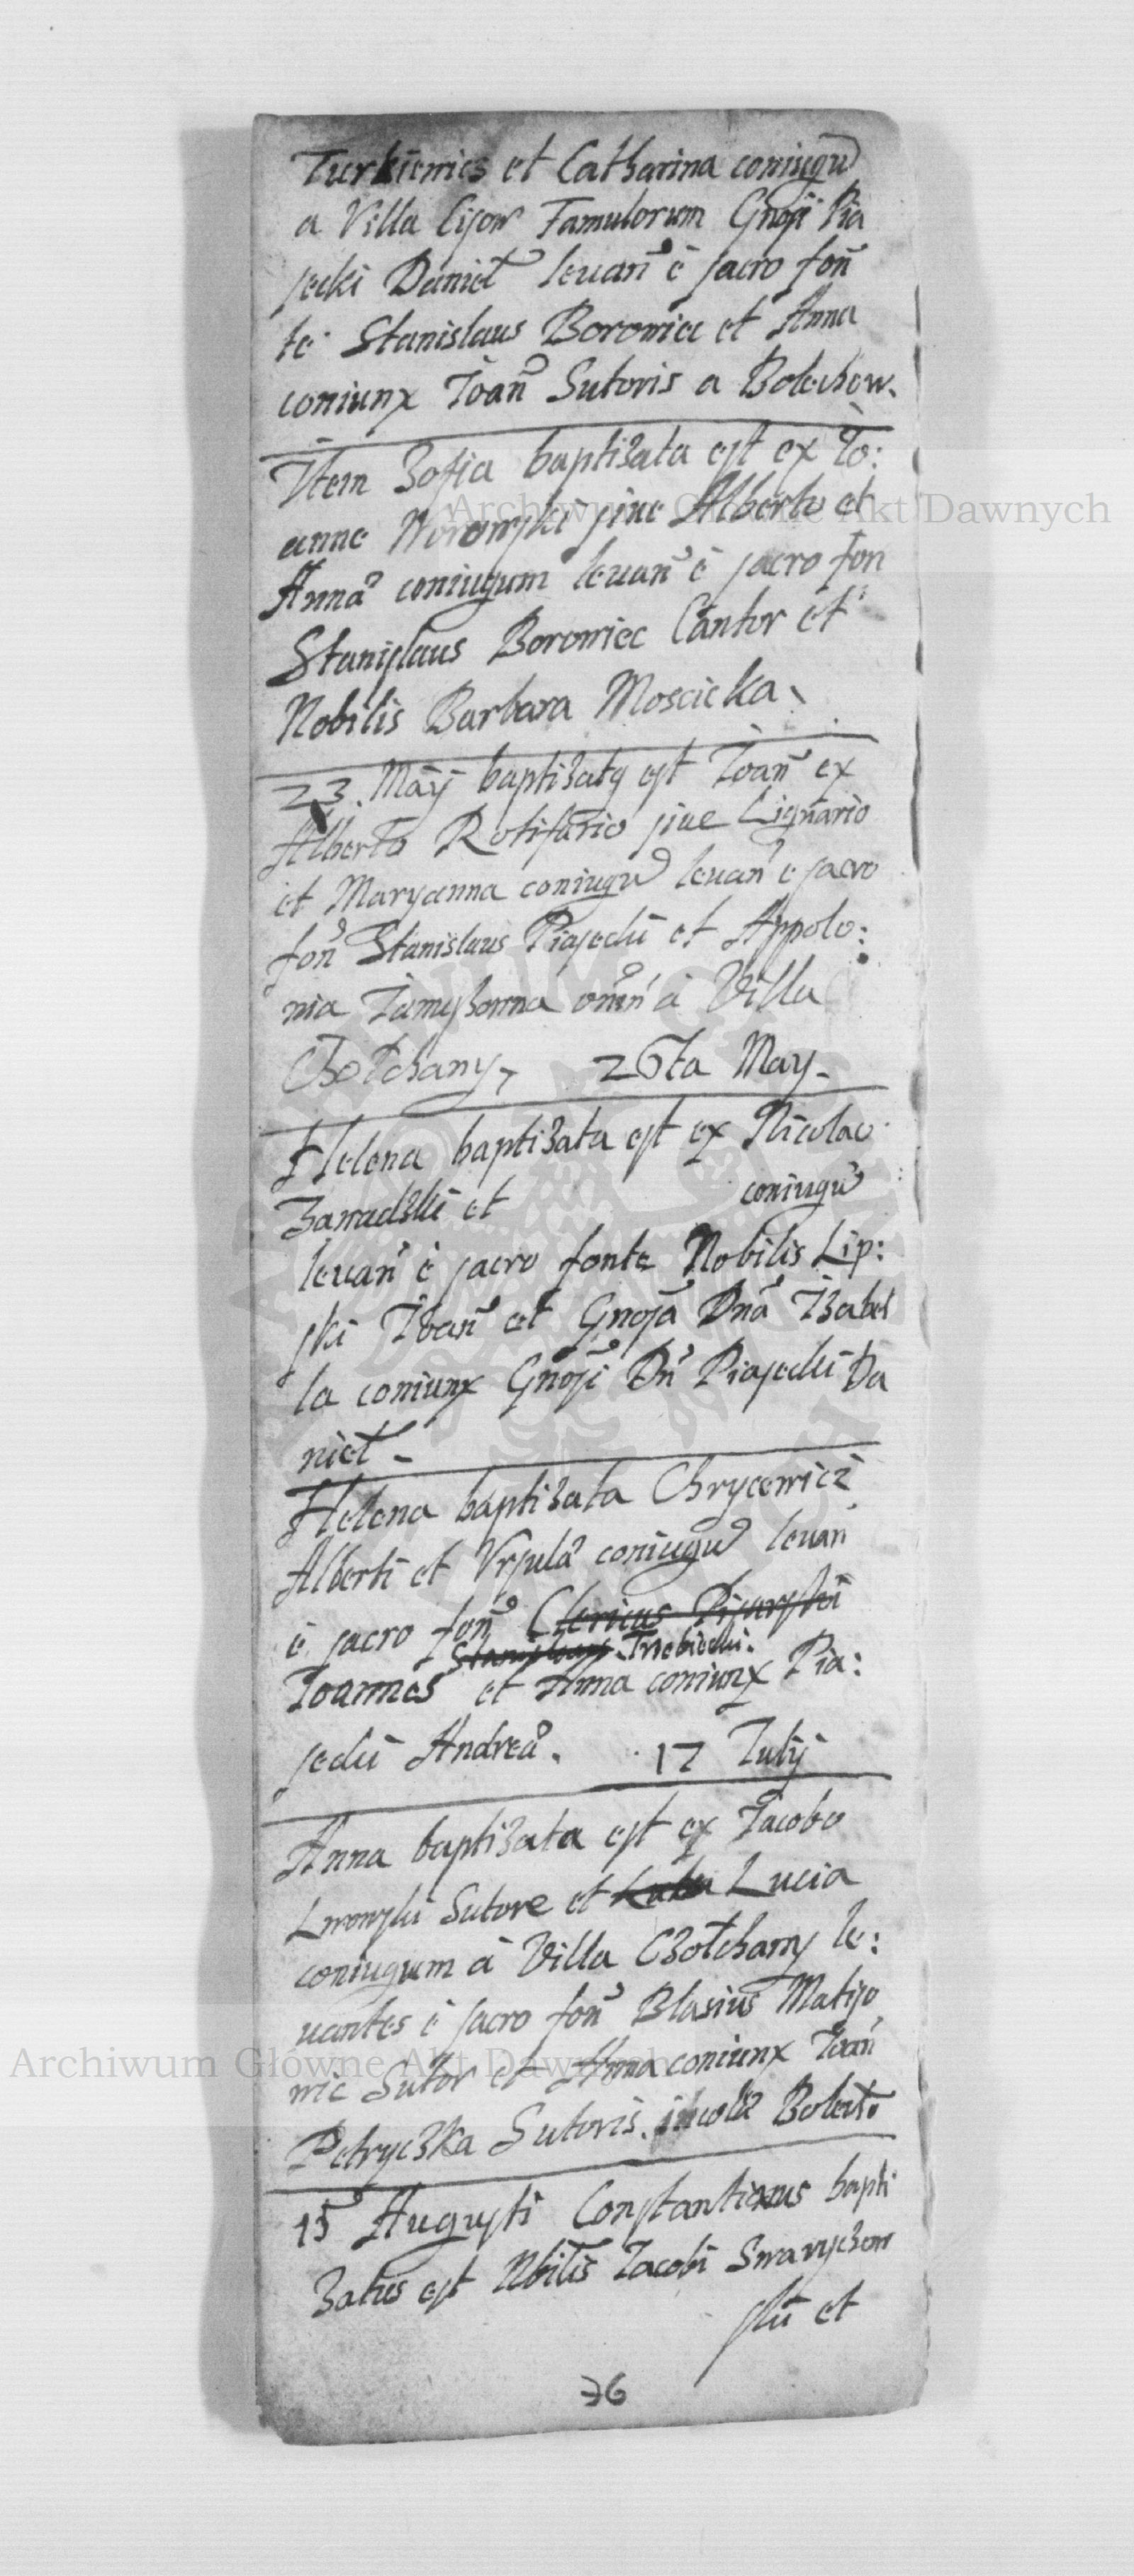 Turkiewics et Catharina coniugũ
a Villa Lisow Famulorum Gnosi Pia
secki Danieł leuanẽ è sacro fon̄
te. Stanislaus Borowiec et Anna
coniunx Ioan̄ Sutoris a Bolechow.
Item Zofia baptizata est ex Io:
anne Worowski siue Alberto et
Anna coniugum leuan̄ è sacro fon
Stanislaus Borowiec Cantor et
Nobilis Barbara Moscicka.
23. Maÿ baptizatq est Ioan̄ ex
Alberto Rotifario siue Lignario
et Maryanna coniugũ leuan̄ e sacro
fon̄ Stanislaus Piasecki et Appolo:
nia omn̄ à Villa
Chołchany, 26ta May.
Helena baptizata est ex Nicolao
Zawadzki et coniugũ
leuan̄ è sacro fonte Nobilis Lip:
ski Ioan̄ et Gnosa Dna Izabel
la coniunx Gnosi Dn̄ Piasecki Da
nieł.
Helena baptizata Chrycewicz
Alberti et Vrsula coniugũ leuan
è sacro fon̄ Clericus Pisarski
Stanislaus Trebicki.
Ioannes et Anna coniunx Pia:
secki Andrea. 17 Iulij
Anna baptizata est ex Iacobo
Lwowski Sutore et Lucia
coniugum à Villa Czołchany le:
uantes è sacro fon̄ Blasius Matijo
wic Sutor et Anna coniunx Ioan̄
Petryczka Sutoris incola Bolech.
15 Augusti Constantinus bapti
zatus est Nbilis Iacobi Swaryczow
ski et
36
Archiwum Główne Akt Dawnych
Archiwum Główne Akt Dawnych